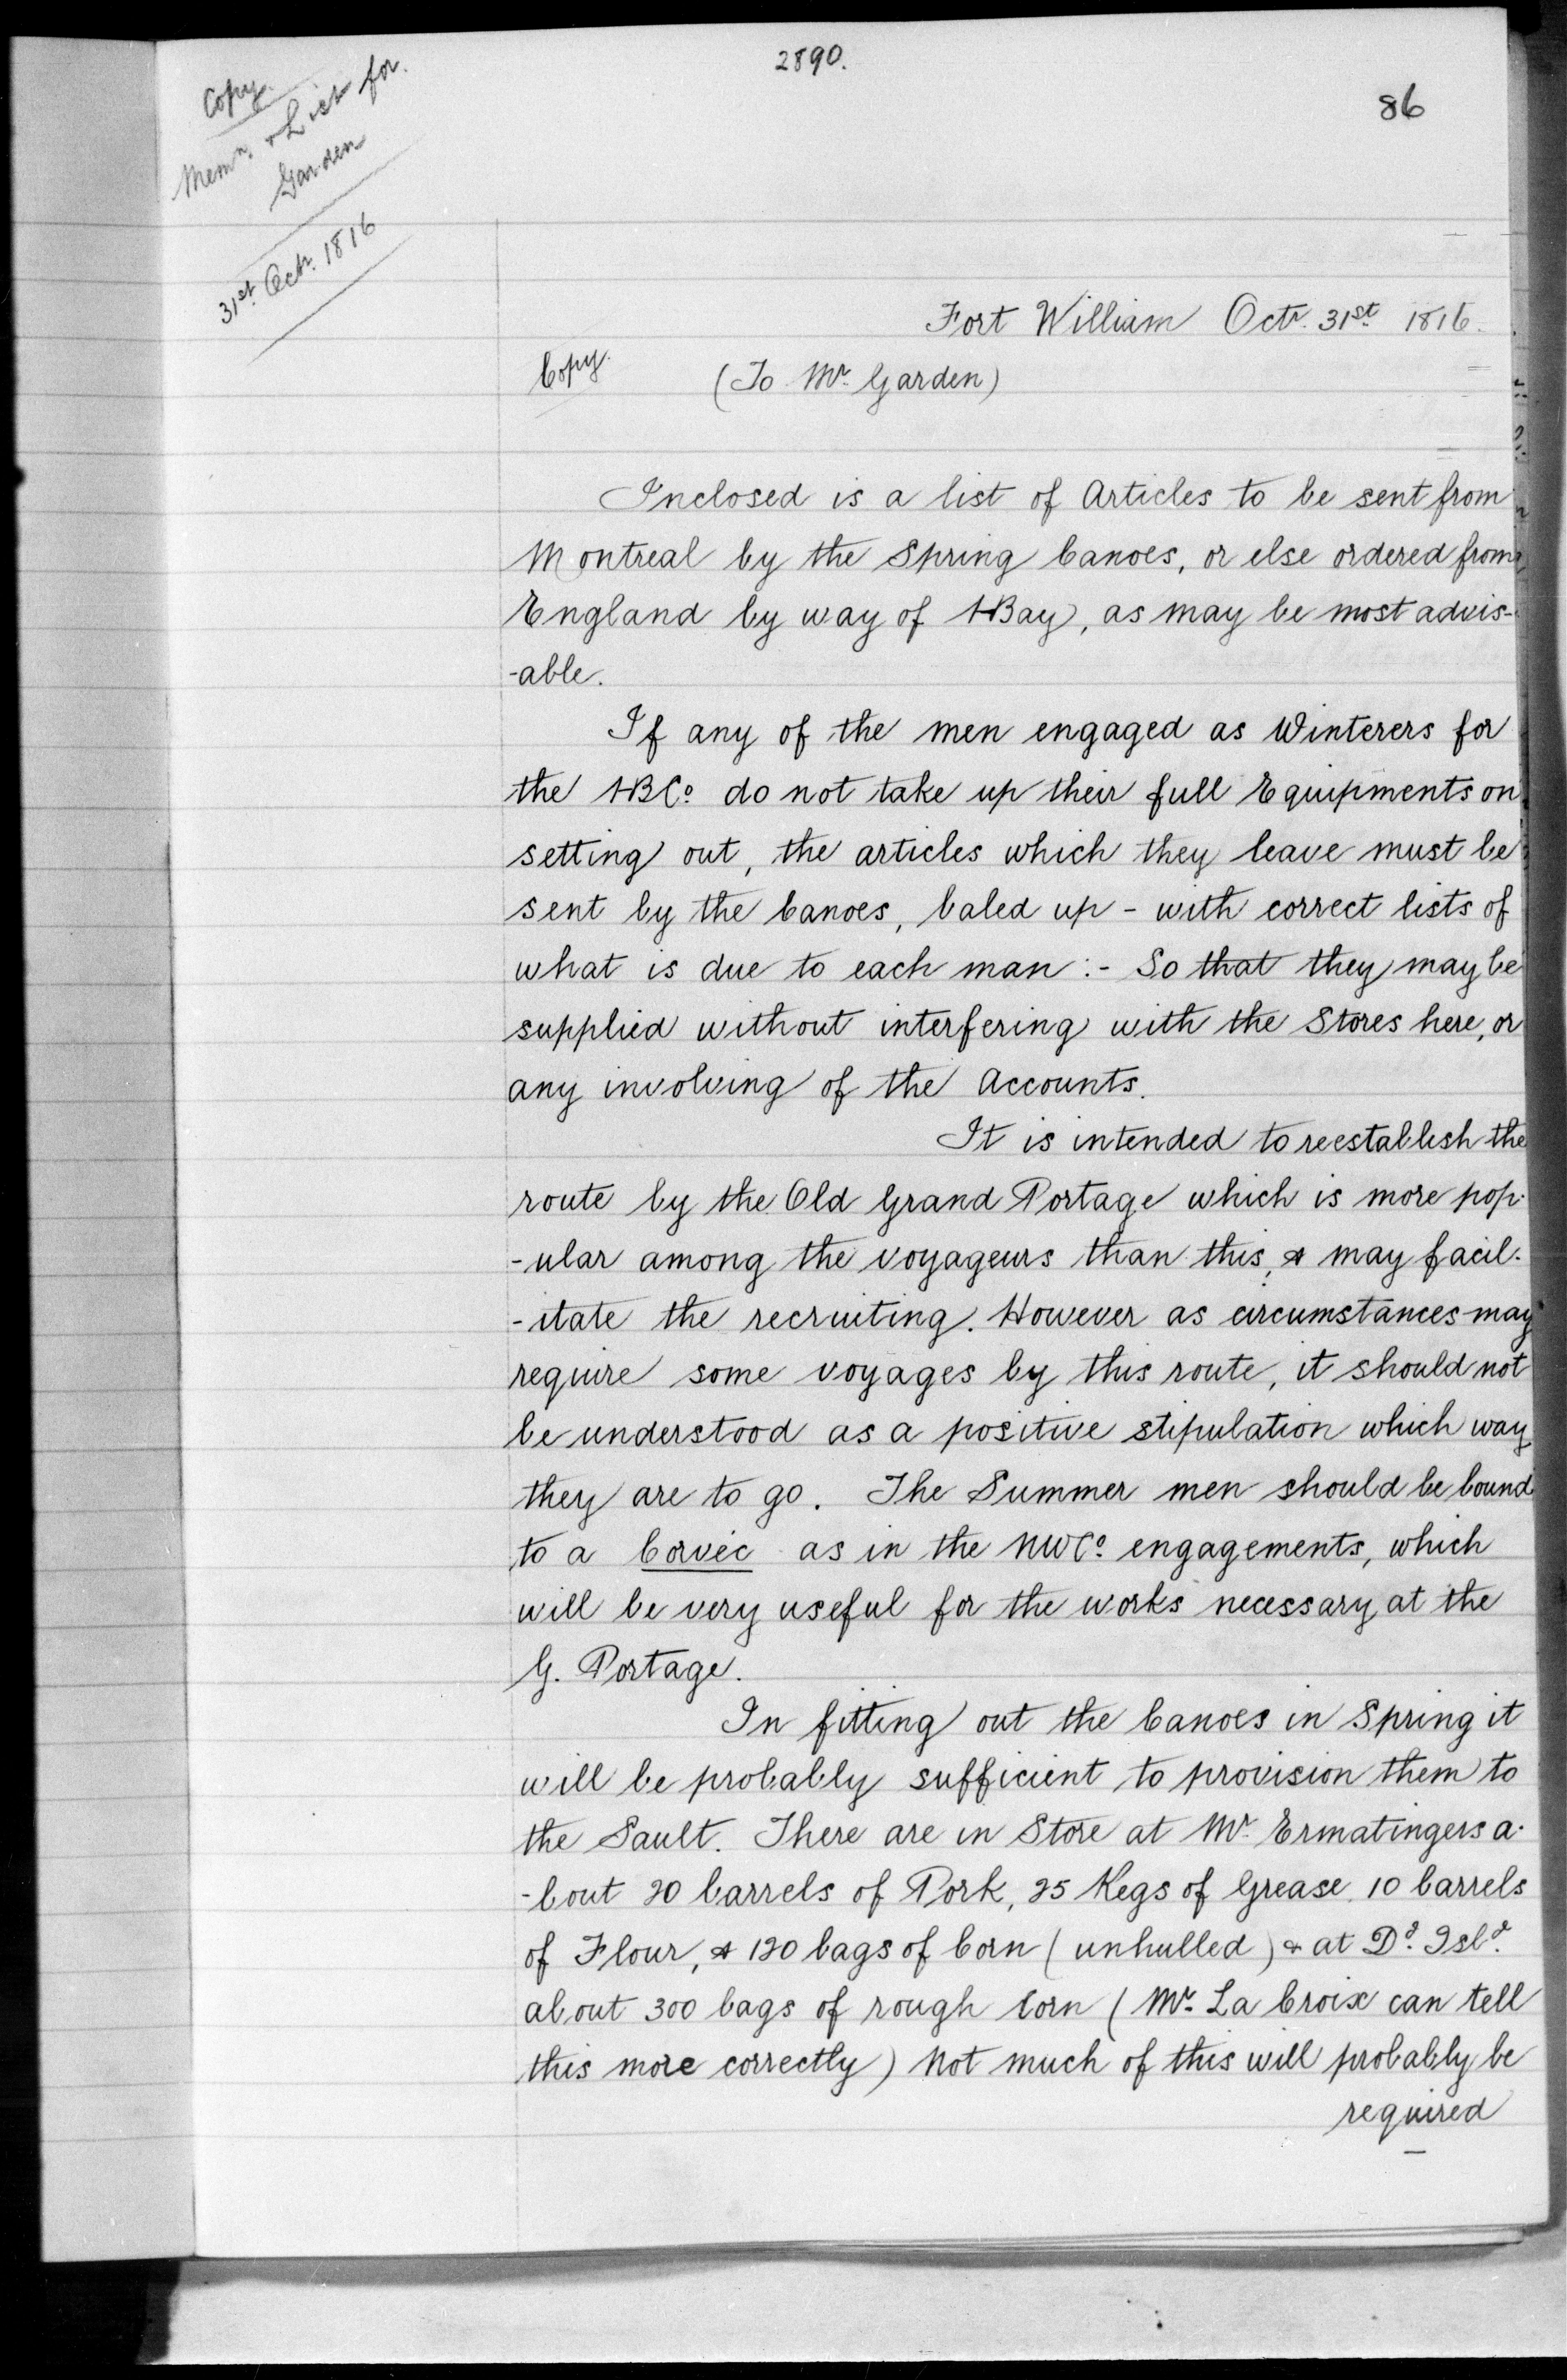 2890.
86
Copy.
Memn. & List for
Garden
31st. Octr. 1816
Fort William Octr. 31st. 1816.
Copy. (To Mr. Garden)
Inclosed is a list of Articles to be sent from
Montreal by the Spring Canoes, or else ordered from
England by way of HBay, as may be most advis-
-able.
If any of the men engaged as Winterers for
the HBCo. do not take up their full Equipments on
setting out, the articles which they leave must be
sent by the Canoes, baled up - with correct lists of
what is due to each man :- So that they may be
supplied without interfering with the Stores here, or
any involving of the Accounts.
It is intended to reestablish the
route by the Old Grand Portage which is more pop-
-ular among the voyageurs than this, & may facil-
-itate the recruiting. However as circumstances may
require some voyages by this route, it should not
be understood as a positive stipulation which way
they are to go. The Summer men should be bound
to a Corvéc as in the NWCo. engagements, which
will be very useful for the works necessary at the
G. Portage.
In fitting out the Canoes in Spring it
will be probably sufficient to provision them to
the Sault. There are in Store at Mr. Ermatingers a-
-bout 20 barrels of Pork, 25 Kegs of Grease, 10 barrels
of Flour, & 120 bags of Corn (unhulled) & at Dd. Isld.
about 300 bags of rough Corn (Mr. La Croix can tell
this more correctly) Not much of this will probably be
required